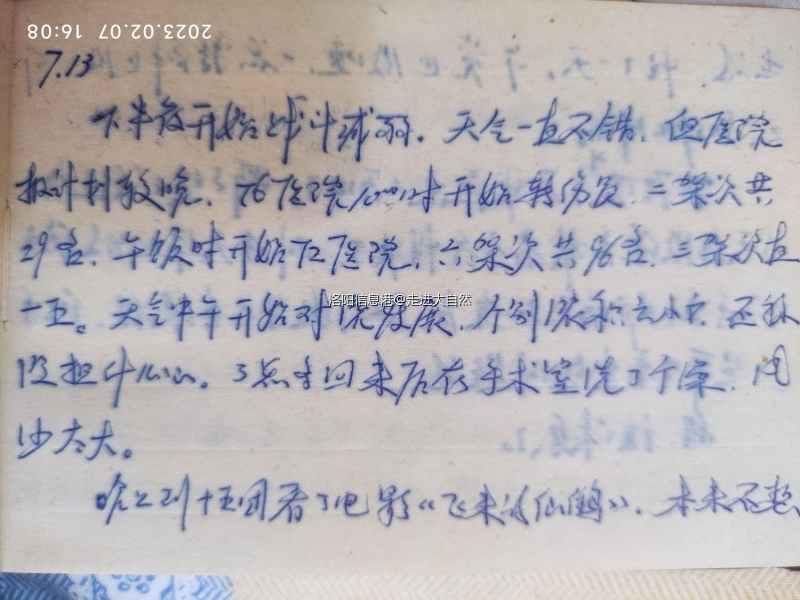 2023.02.07 16:08
7.13
下半夜开始战斗减弱。天气一直不错，但医院
报计划较晚，76医院10时开始转伤员，二架次共
29名，午饭时开始72医院，六架次共96名，三架次在
一五。天气中午开始对流发展，个别浓积云
没担什么心。3点才回来后在手术室洗了个澡，用
太大。
洛阳信息港@走进大自然
晚上到十五团看了电影《飞来的仙鹤》，本来不想